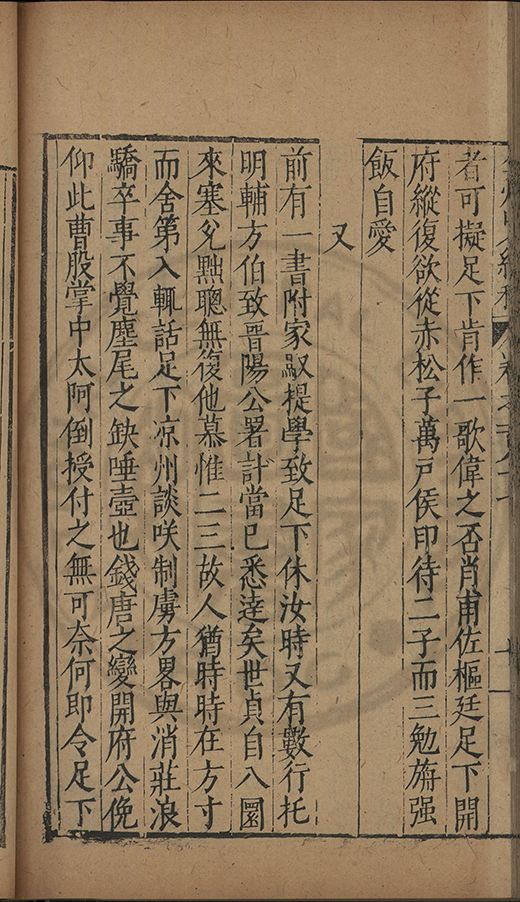 者可擬足下肯作一歌偉之否肖甫佐樞廷足下開
府縱復欲從赤松子萬戶侯印待二子而三勉旃强
飯自愛
又
前有一書附家馭提學致足下休汝時又有數行托
明輔方伯致晋陽公署計當已悉逹矣世貞自入園
來塞兊黜聰無復他慕惟二三故人猶時時在方寸
而舍第入輒話足下凉州談咲制虜方畧與消莊浪
驕卒事不覺麈尾之缺唾壺也錢唐之變開府公俛
仰此曹股掌中太阿倒授付之無可奈何即令足下